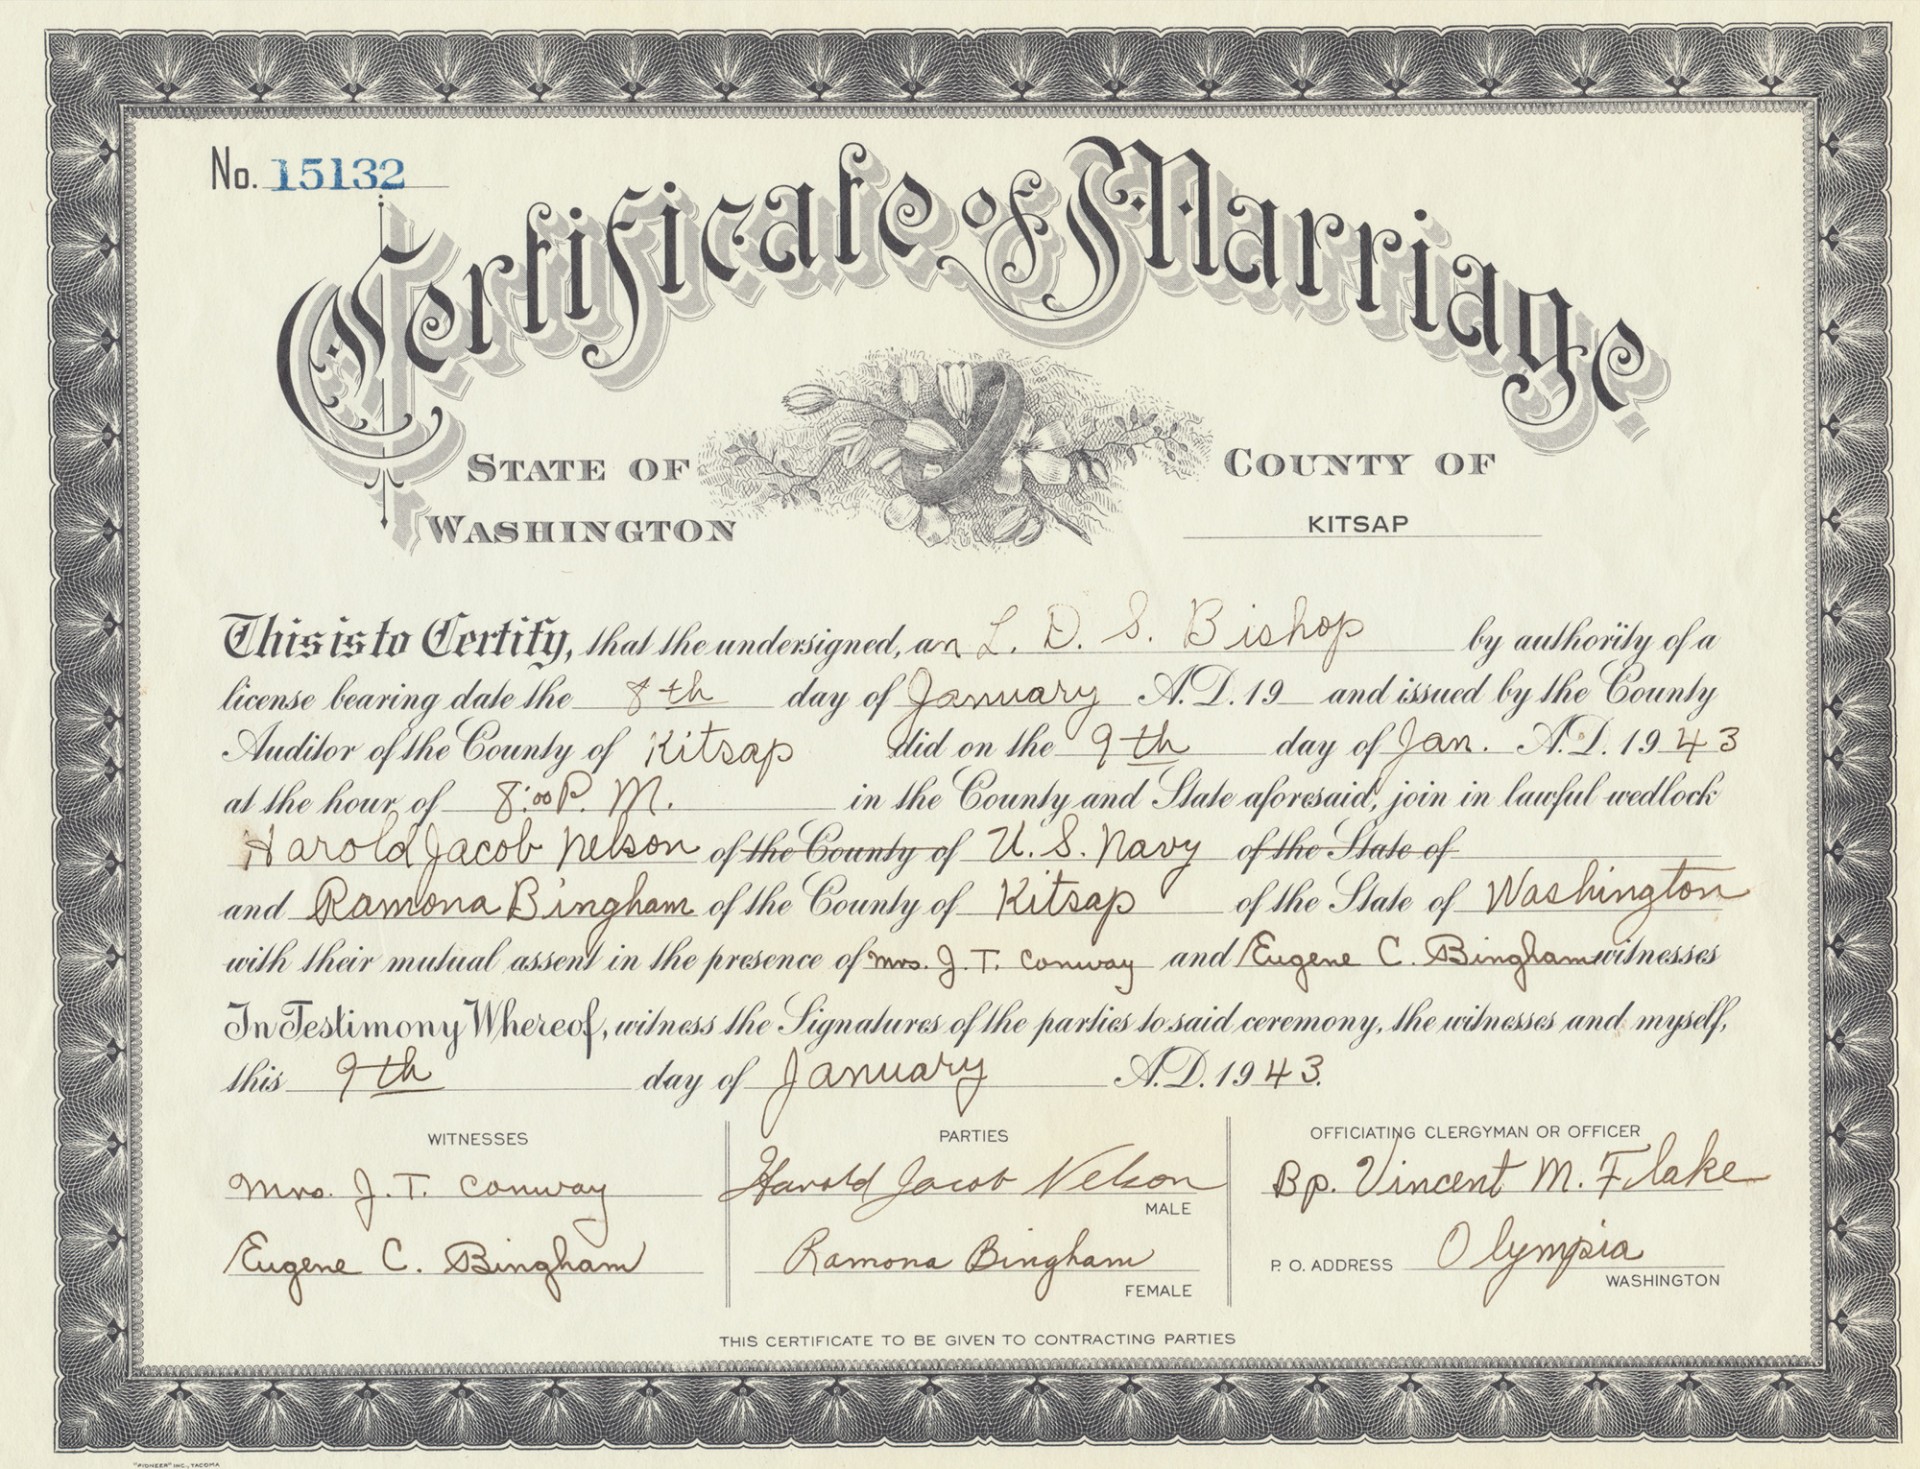 No. 15132
Certificate of Marriage
State of Washington
County of
KITSAP
This is to Certify, that the undersigned, an L. D. S. Bishop by authority of a
license bearing date the 8th day of January A.D. 19 and issued by the County
Auditor of the County of Kitsap did on the 9th day of Jan. A.D. 1943
at the hour of 8:00 P. M. in the County and State aforesaid, join in lawful wedlock
Harold Jacob Nelson of the County of U. S. Navy of the State of
and Ramona Bingham of the County of Kitsap of the State of Washington
with their mutual assent in the presence of Mrs. J. T. Conway and Eugene C. Bingham witnesses
In Testimony Whereof, witness the Signatures of the parties to said ceremony, the witnesses and myself,
this 9th day of January A.D. 1943.
WITNESSES
Mrs. J. T. Conway
Eugene C. Bingham
PARTIES
Harold Jacob Nelson
MALE
Ramona Bingham
FEMALE
OFFICIATING CLERGYMAN OR OFFICER
Bp. Vincent M. Flake
P. O. ADDRESS Olympia
WASHINGTON
THIS CERTIFICATE TO BE GIVEN TO CONTRACTING PARTIES
"PIONEER" INC., TACOMA